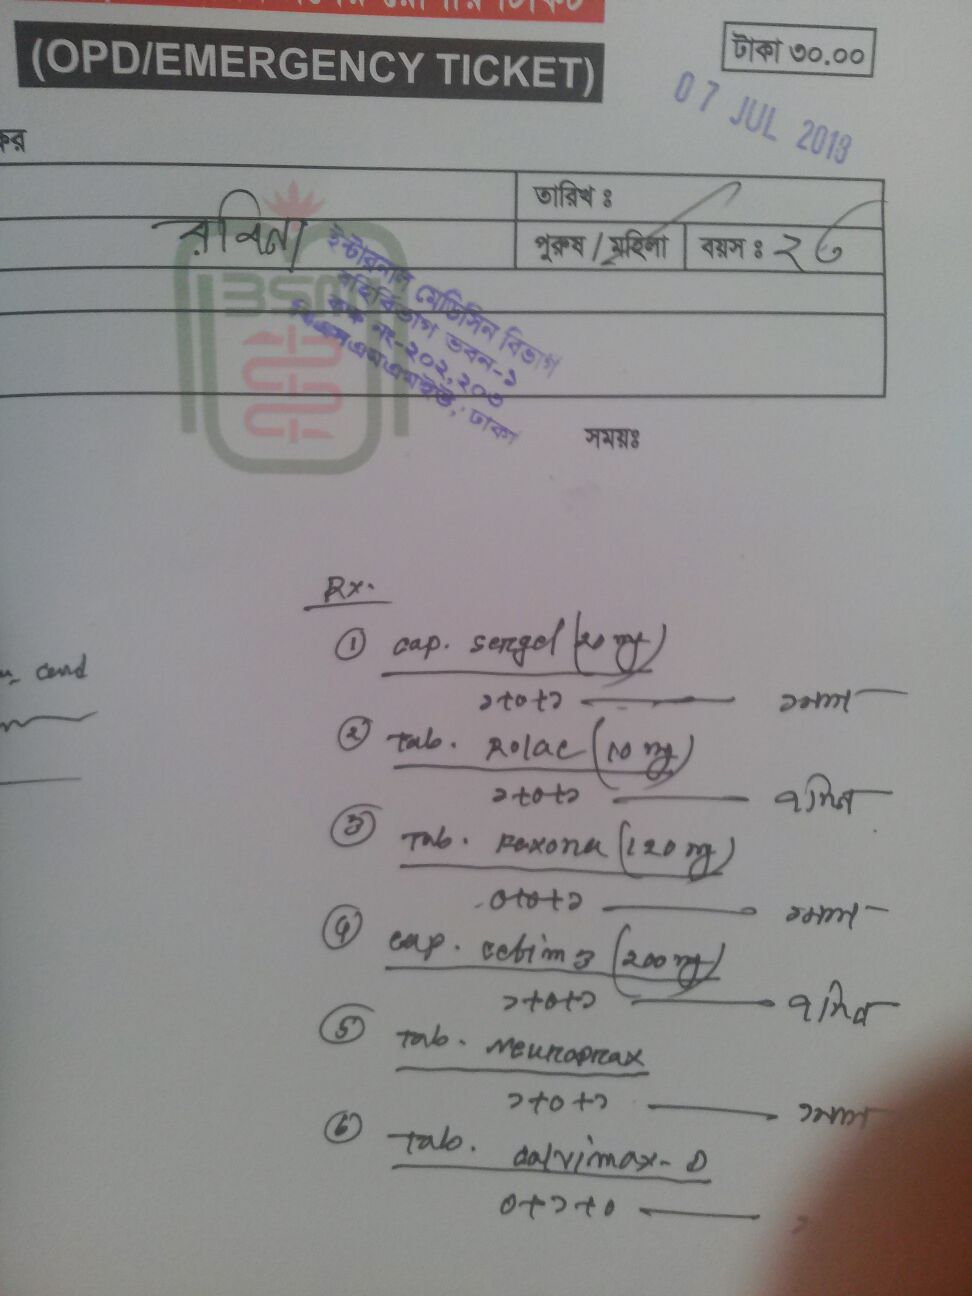 (OPD/EMERGENCY TICKET)
টাকা ৩০.০০
07 JUL 2013
তারিখ ঃ
রবিনা
পুরুষ / মহিলা
বয়স ঃ ২৩
BSM
ইন্টারনাল মেডিসিন বিভাগ
বহির্বিভাগ ভবন-১
কক্ষ নং-২০২, ২০৩
বিএসএমএমইউ, ঢাকা
সময়ঃ
Rx.
① cap. Sergel (20 mg)
১+০+১ — ১মাস
② Tab. Rolac (10 mg)
১+০+১ — ৭দিন
③ Tab. Fexona (120 mg)
০+০+১ — ১মাস
④ cap. cebim 3 (200 mg)
১+০+১ — ৭দিন
⑤ Tab. Neuroprax
১+০+১ — ১মাস
⑥ Tab. calvimax-D
০+১+০ —
cond